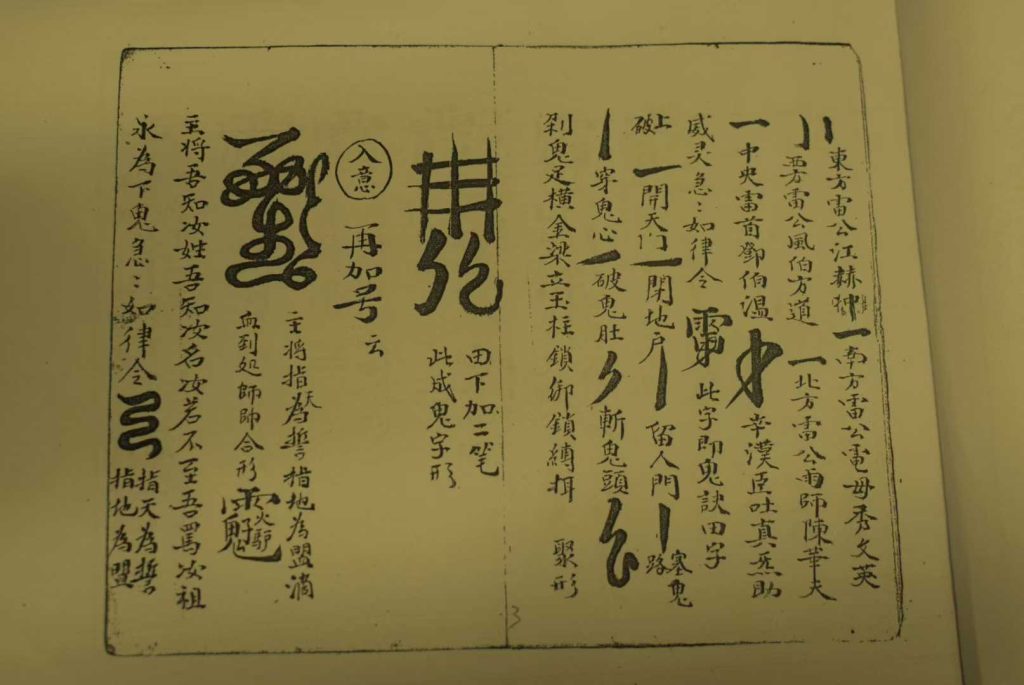 東方雷公江赫冲 一 南方雷公電母秀文英
西方雷公風伯方道 一 北方雷公雨師陳華夫
一 中央雷首鄧伯温 辛漢臣吐真炁助
威灵急〻如律令 此字即鬼訣田字
上破 一 開天門 一 閉地户 丨 留人門 丨 塞鬼路
丨 穿鬼心 一 破鬼肚 斬鬼頭
剁鬼足横金梁立玉柱鎖御鎖縛挕 聚形
田下加二笔
此成鬼字形
入意 再加号云
主将指天為誓指地為盟滴
血到処師帥合形
主将吾知汝姓吾知汝名汝若不至吾罵汝祖
永為下鬼急〻如律令 指天為誓
指地為盟
3